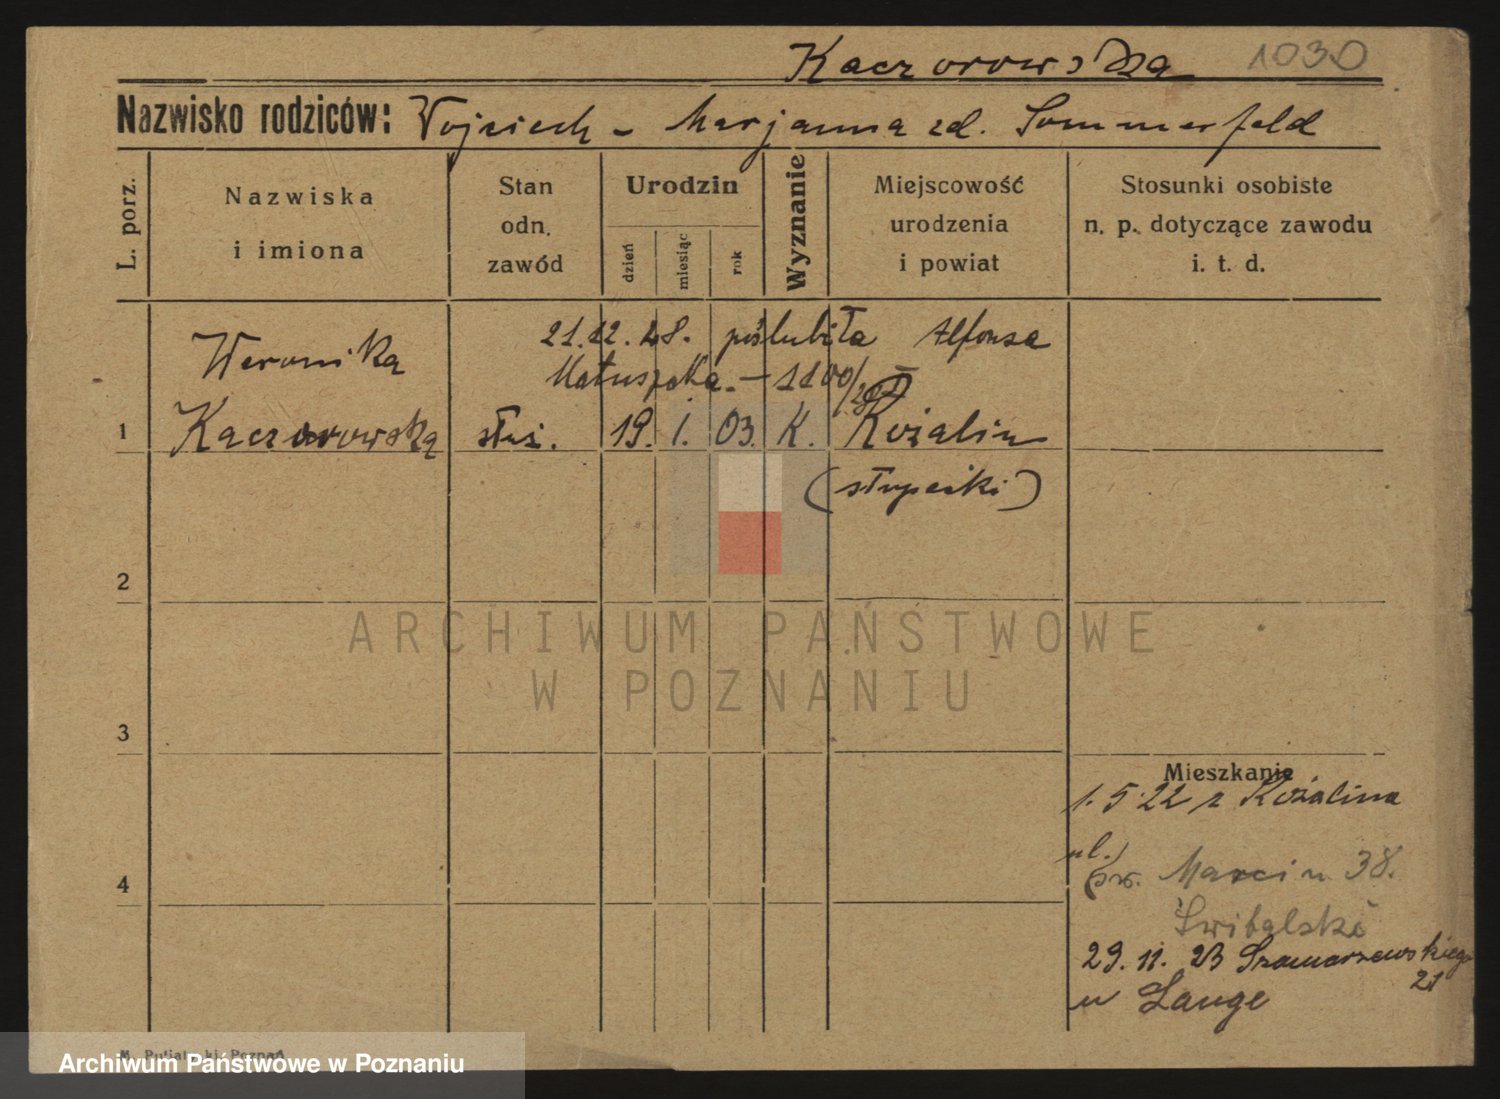 Kaczorowska 1030
Nazwisko rodziców: Wojciech - Marjanna zd. Sommerfeld
L. porz.
Nazwiska
i imiona
Stan
odn.
zawód
Urodzin
dzień
miesiąc
rok
Wyznanie
Miejscowość
urodzenia
i powiat
Stosunki osobiste
n. p. dotyczące zawodu
i. t. d.
21.12.28. poślubiła Alfonsa
Matuszaka. - 1100/28
Weronika
1 Kaczorowska służ. 19. I. 03. K. Rożalin
(słupecki)
2
ARCHIWUM PAŃSTWOWE
W POZNANIU
3
Mieszkanie
1.5.22 z Rożalina
4
ul.
św. Marcin 38.
29.11.23 Szamarzewskiego
21
u Lange
Poznań
Archiwum Państwowe w Poznaniu